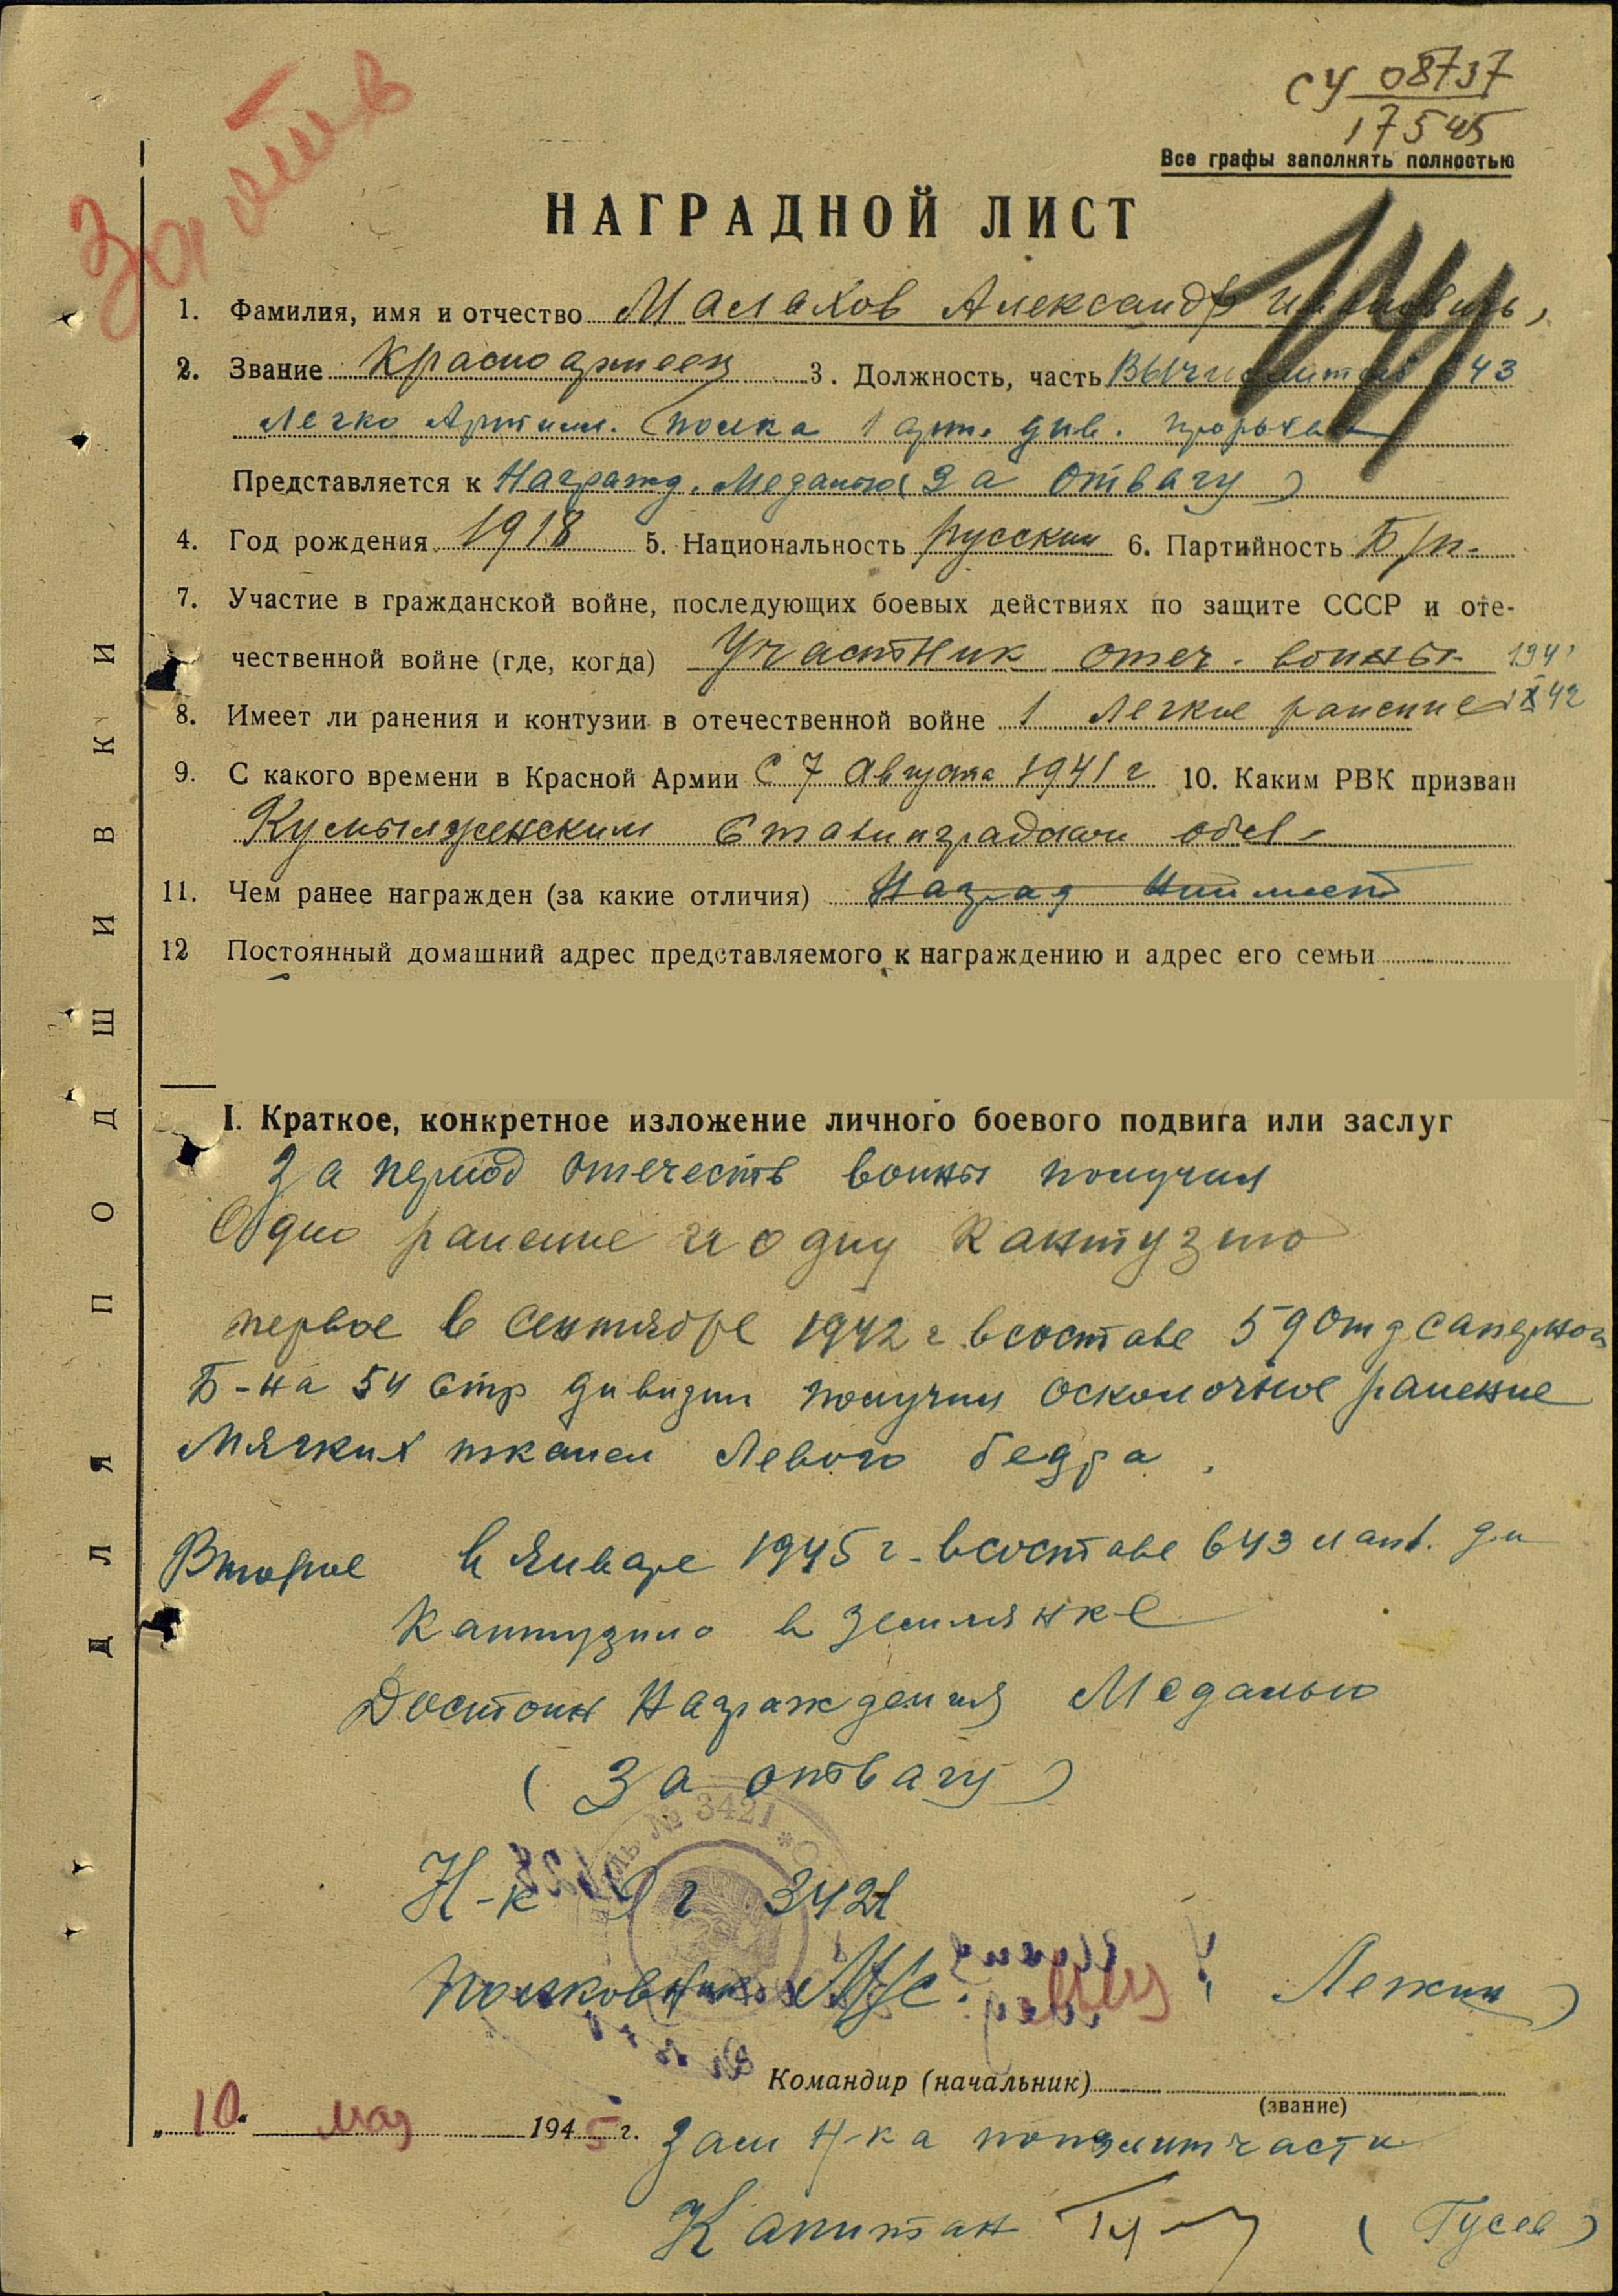 За отв
СУ 08737
17545
Все графы заполнять полностью
НАГРАДНОЙ ЛИСТ
1. Фамилия, имя и отчество Малахов Александр
2. Звание Красноармеец 3. Должность, часть Вычислитель 643
Легко Артилл. полка 1 арт. див. прорыва
Представляется к Награжд. Медалью (За Отвагу)
4. Год рождения 1918 5. Национальность русский 6. Партийность Б/п.
7. Участие в гражданской войне, последующих боевых действиях по защите СССР и оте-
чественной войне (где, когда) Участник отеч. войны 1941
8. Имеет ли ранения и контузии в отечественной войне 1 легкое ранение IX 42
9. С какого времени в Красной Армии С 7 Августа 1941 г 10. Каким РВК призван
Кумылженским Сталинградской обл
11. Чем ранее награжден (за какие отличия) Наград Ниимеет
12 Постоянный домашний адрес представляемого к награждению и адрес его семьи
I. Краткое, конкретное изложение личного боевого подвига или заслуг
За период отечеств войны получил
Одно ранение и одну кантузию
первое в сентябре 1942 г. в составе 59 отд саперного
Б-на 54 стр дивизии получил осколочное ранение
Мягких тканей Левого бедра.
Второе в Январе 1945 г. в составе 643 лап.
Кантузию в землянке
Достоин Награждения Медалью
(За отвагу)
№ 3421
Н-к ЭГ 3421
полковник М/С. (Лежин)
Командир (начальник)
(звание)
„10“ мая 1945 г.
Зам Н-ка пополитчасти
Капитан (Гусев)
ДЛЯ ПОДШИВКИ